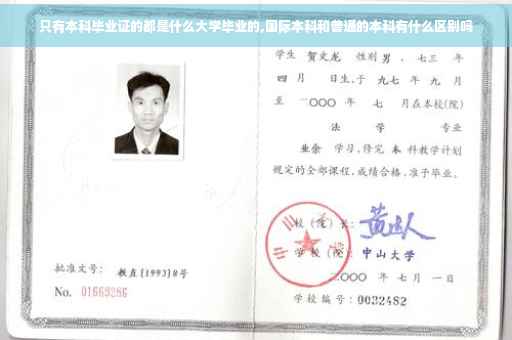 只有本科毕业证的都是什么大学毕业的,国际本科和普通的本科有什么区别吗
学生 贺文龙 性别 男 、七三 年
四 月 日生,于 九七 年 九 月
至 二〇〇〇 年 七 月在本校(院)
法 学 专业
业余 学习,修完 本 科教学计划
规定的全部课程,成绩合格,准予毕业。
校 (院) 长:
学 校 (院): 中山大学
二〇〇〇 年 七 月 一 日
学校编号:0032482
批准文号: 教直[1993]8号
No. 01669286